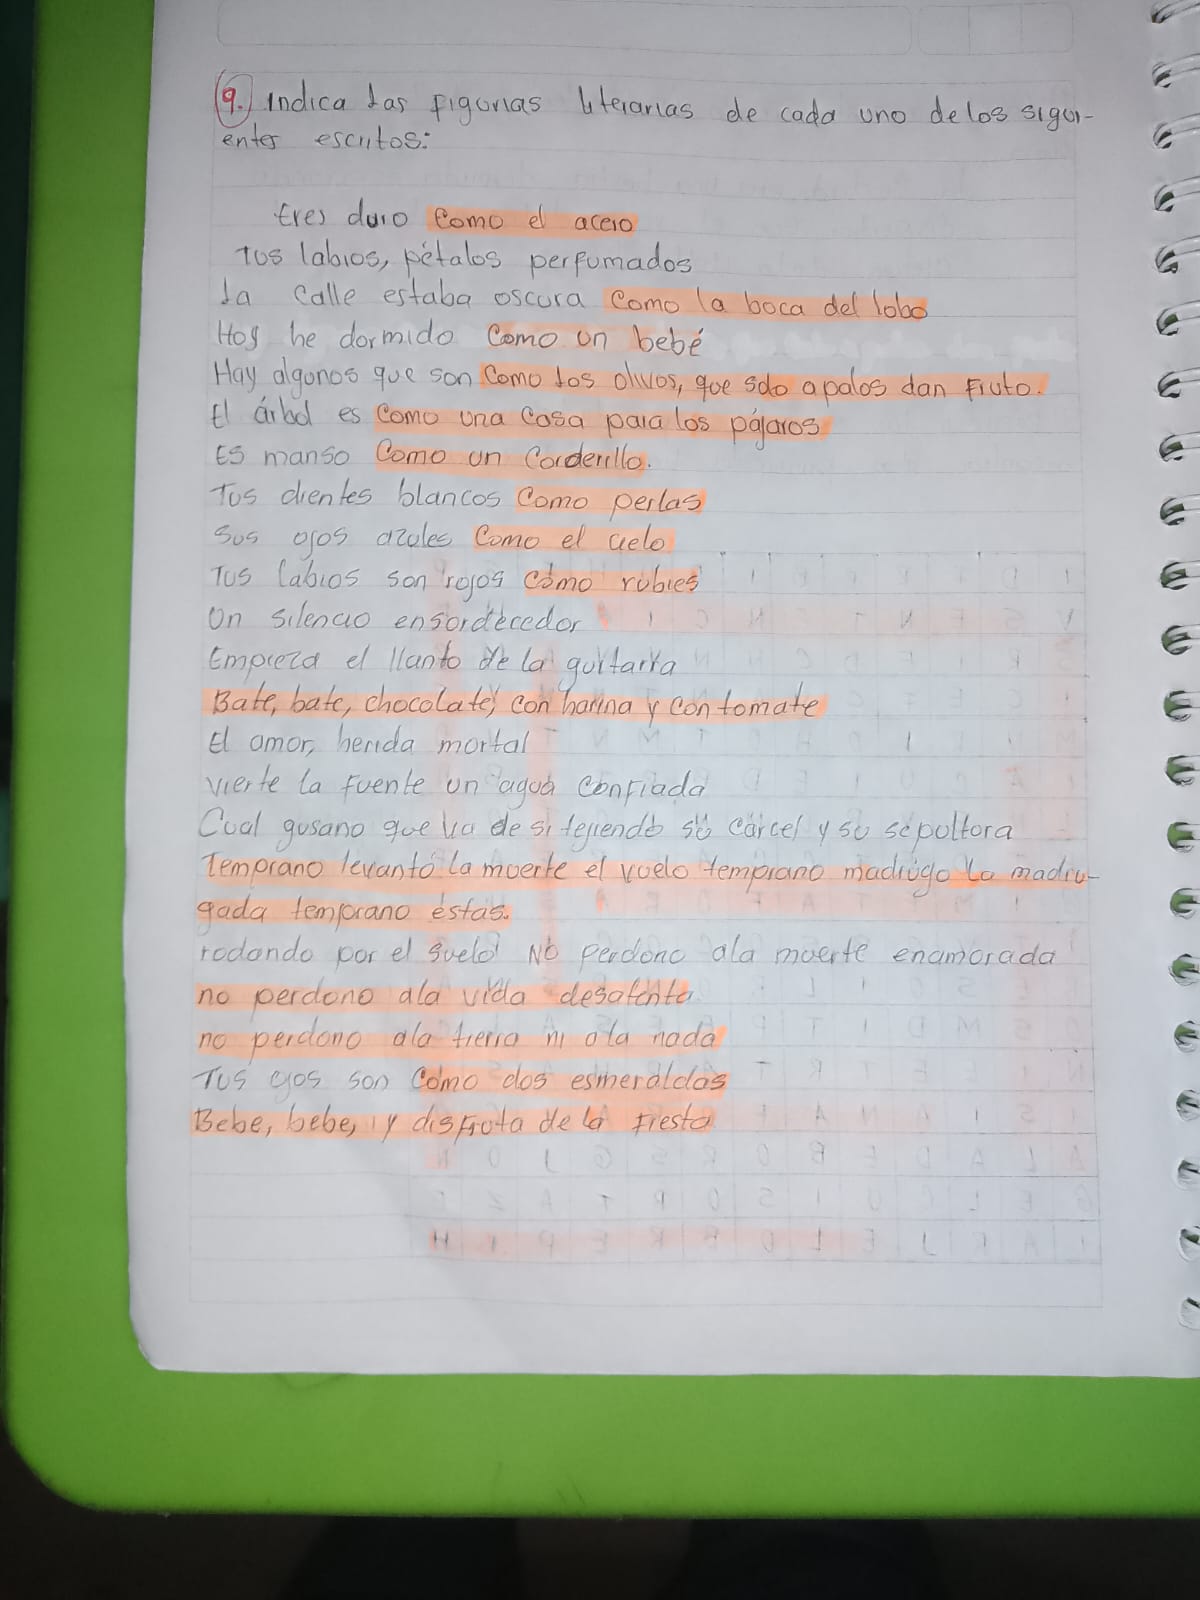 9. Indica las figuras literarias de cada uno de los sigui-
entes escritos:
Eres duro como el acero
Tus labios, pétalos perfumados
La calle estaba oscura como la boca del lobo
Hoy he dormido como un bebé
Hay algunos que son como los olivos, que solo a palos dan fruto.
El árbol es como una casa para los pájaros
Es manso como un corderillo.
Tus dientes blancos como perlas
Sus ojos azules como el cielo
Tus labios son rojos como rubies
Un silencio ensordecedor
Empieza el llanto de la guitarra
Bate, bate, chocolate, con harina y con tomate
El amor, herida mortal
vierte la fuente un agua confiada
Cual gusano que va de si tejiendo su cárcel y su sepultura
Temprano levantó la muerte el vuelo temprano madrugo la madru-
gada temprano estás.
rodando por el suelo No perdono ala muerte enamorada
no perdono ala vida desatenta
no perdono ala tierra ni ala nada
Tus ojos son como dos esmeraldas
Bebe, bebe, y disfruta de la fiesta